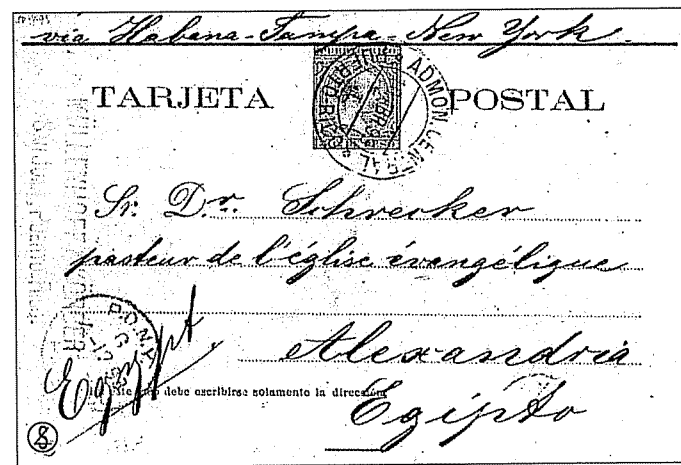 via Habana-Tampa-New York.
TARJETA POSTAL
ADMON. CENTRAL
PUERTO RICO
Sr. Dr. Schrecker
pasteur de l'église évangélique
Alexandria
Egipto
Egypt
P.O.N.Y.
debe escribirse solamente la dirección
8